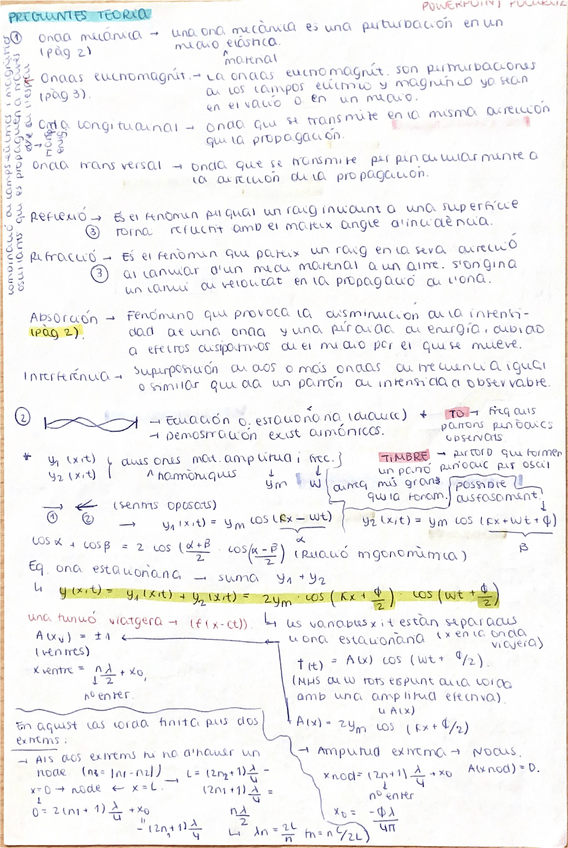 PREGUNTES TEORIA
POWERPOINT
① onda mecánica → una ona mecànica es una perturbación en un
(pàg 2) medio elástica.
material
Ondas electromagnét. → La ondas electromagnét. son perturbaciones
(pàg 3). de los campos eléctrico y magnético ya sean
en el vacío o en un medio.
Onda longitudinal → onda que se transmite en la misma dirección
que la propagación.
onda transversal → onda que se transmite perpendicularmente a
la dirección de la propagación.
Reflexió → És el fenòmen pel qual un raig incident a una superfície
③ torna reflectit amb el mateix angle d'incidència.
Refracció → És el fenòmen que pateix un raig en la seva direcció
③ al canviar d'un medi material a un altre. S'origina
un canvi de velocitat en la propagació de l'ona.
Absorción → Fenómeno que provoca la disminución de la intensi-
(pàg 2). dad de una onda y una pérdida de energía, debido
a efectos disipativos de el medio por el que se mueve.
Interferència → Superposición de dos o más ondas de frecuencia igual
o similar que da un patrón de intensidad observable.
② → Ecuación o. estacionaria
→ Demostración exist armónicos.
* TO → freq dels
patrons periòdics
observats
* y₁(x,t) } dues ones mat. amplitud i frec.
y₂(x,t) harmòniques
ym w
TIMBRE →
un patró periòdic per oscil
possible
desfasament
① ② (sentits oposats)
→ y₁(x,t) = ym cos(kx − wt) y₂(x,t) = ym cos (kx+wt+ϕ)
α β
cos α + cos β = 2 cos (α+β/2) · cos(α−β/2) (Relació trigonomètrica)
Eq. ona estacionària → suma y₁ + y₂
↳ y(x,t) = y₁(x,t) + y₂(x,t) = 2ym · cos (kx + ϕ/2) · cos (wt + ϕ/2)
una funció viatgera → (f(x−ct)). ↳ les variables x i t estàn separades
a ona estacionària (x en la onda
viajera)
A(xv) = ±1
(ventres)
x ventre = nλ/2 + x₀,
n enter.
f(t) = A(x) cos (wt + ϕ/2).
(MHS de w tots els punts de la corda
amb una amplitud efectiva).
↓ A(x)
A(x) = 2ym cos (kx + ϕ/2)
En aquest cas corda finita pels dos
extrems:
→ Als dos extrems hi ha d'haver un
node. (n₃ = |n₁ − n₂|) → L = (2n₂+1) λ/4 −
x=0 → node ← x = L. (2n₁+1) λ/4 =
0 = 2(n₁+1) λ/4 + x₀ nλ/2
−(2n₁+1) λ/4 ↳ λn = 2L/n
→ Amplitud extrema → Nodes.
x nod = (2n+1) λ/4 + x₀ A(x nod) = 0.
n enter
x₀ = −ϕλ/4π